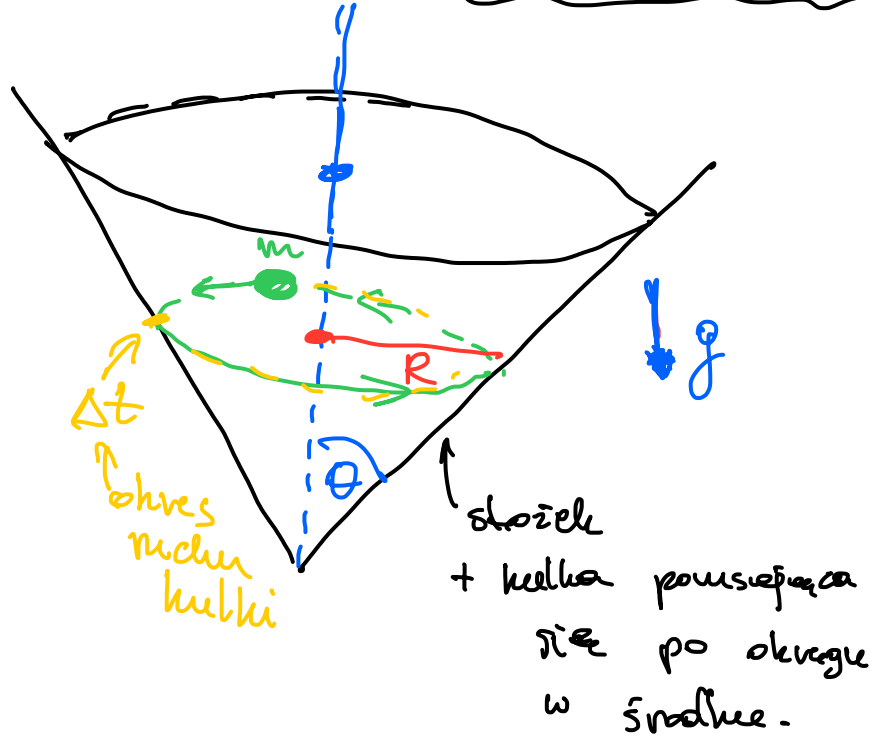 m
R
g
Δt
θ
okres
ruchu
kulki
stożek
+ kulka poruszająca
się po okręgu
w środku.